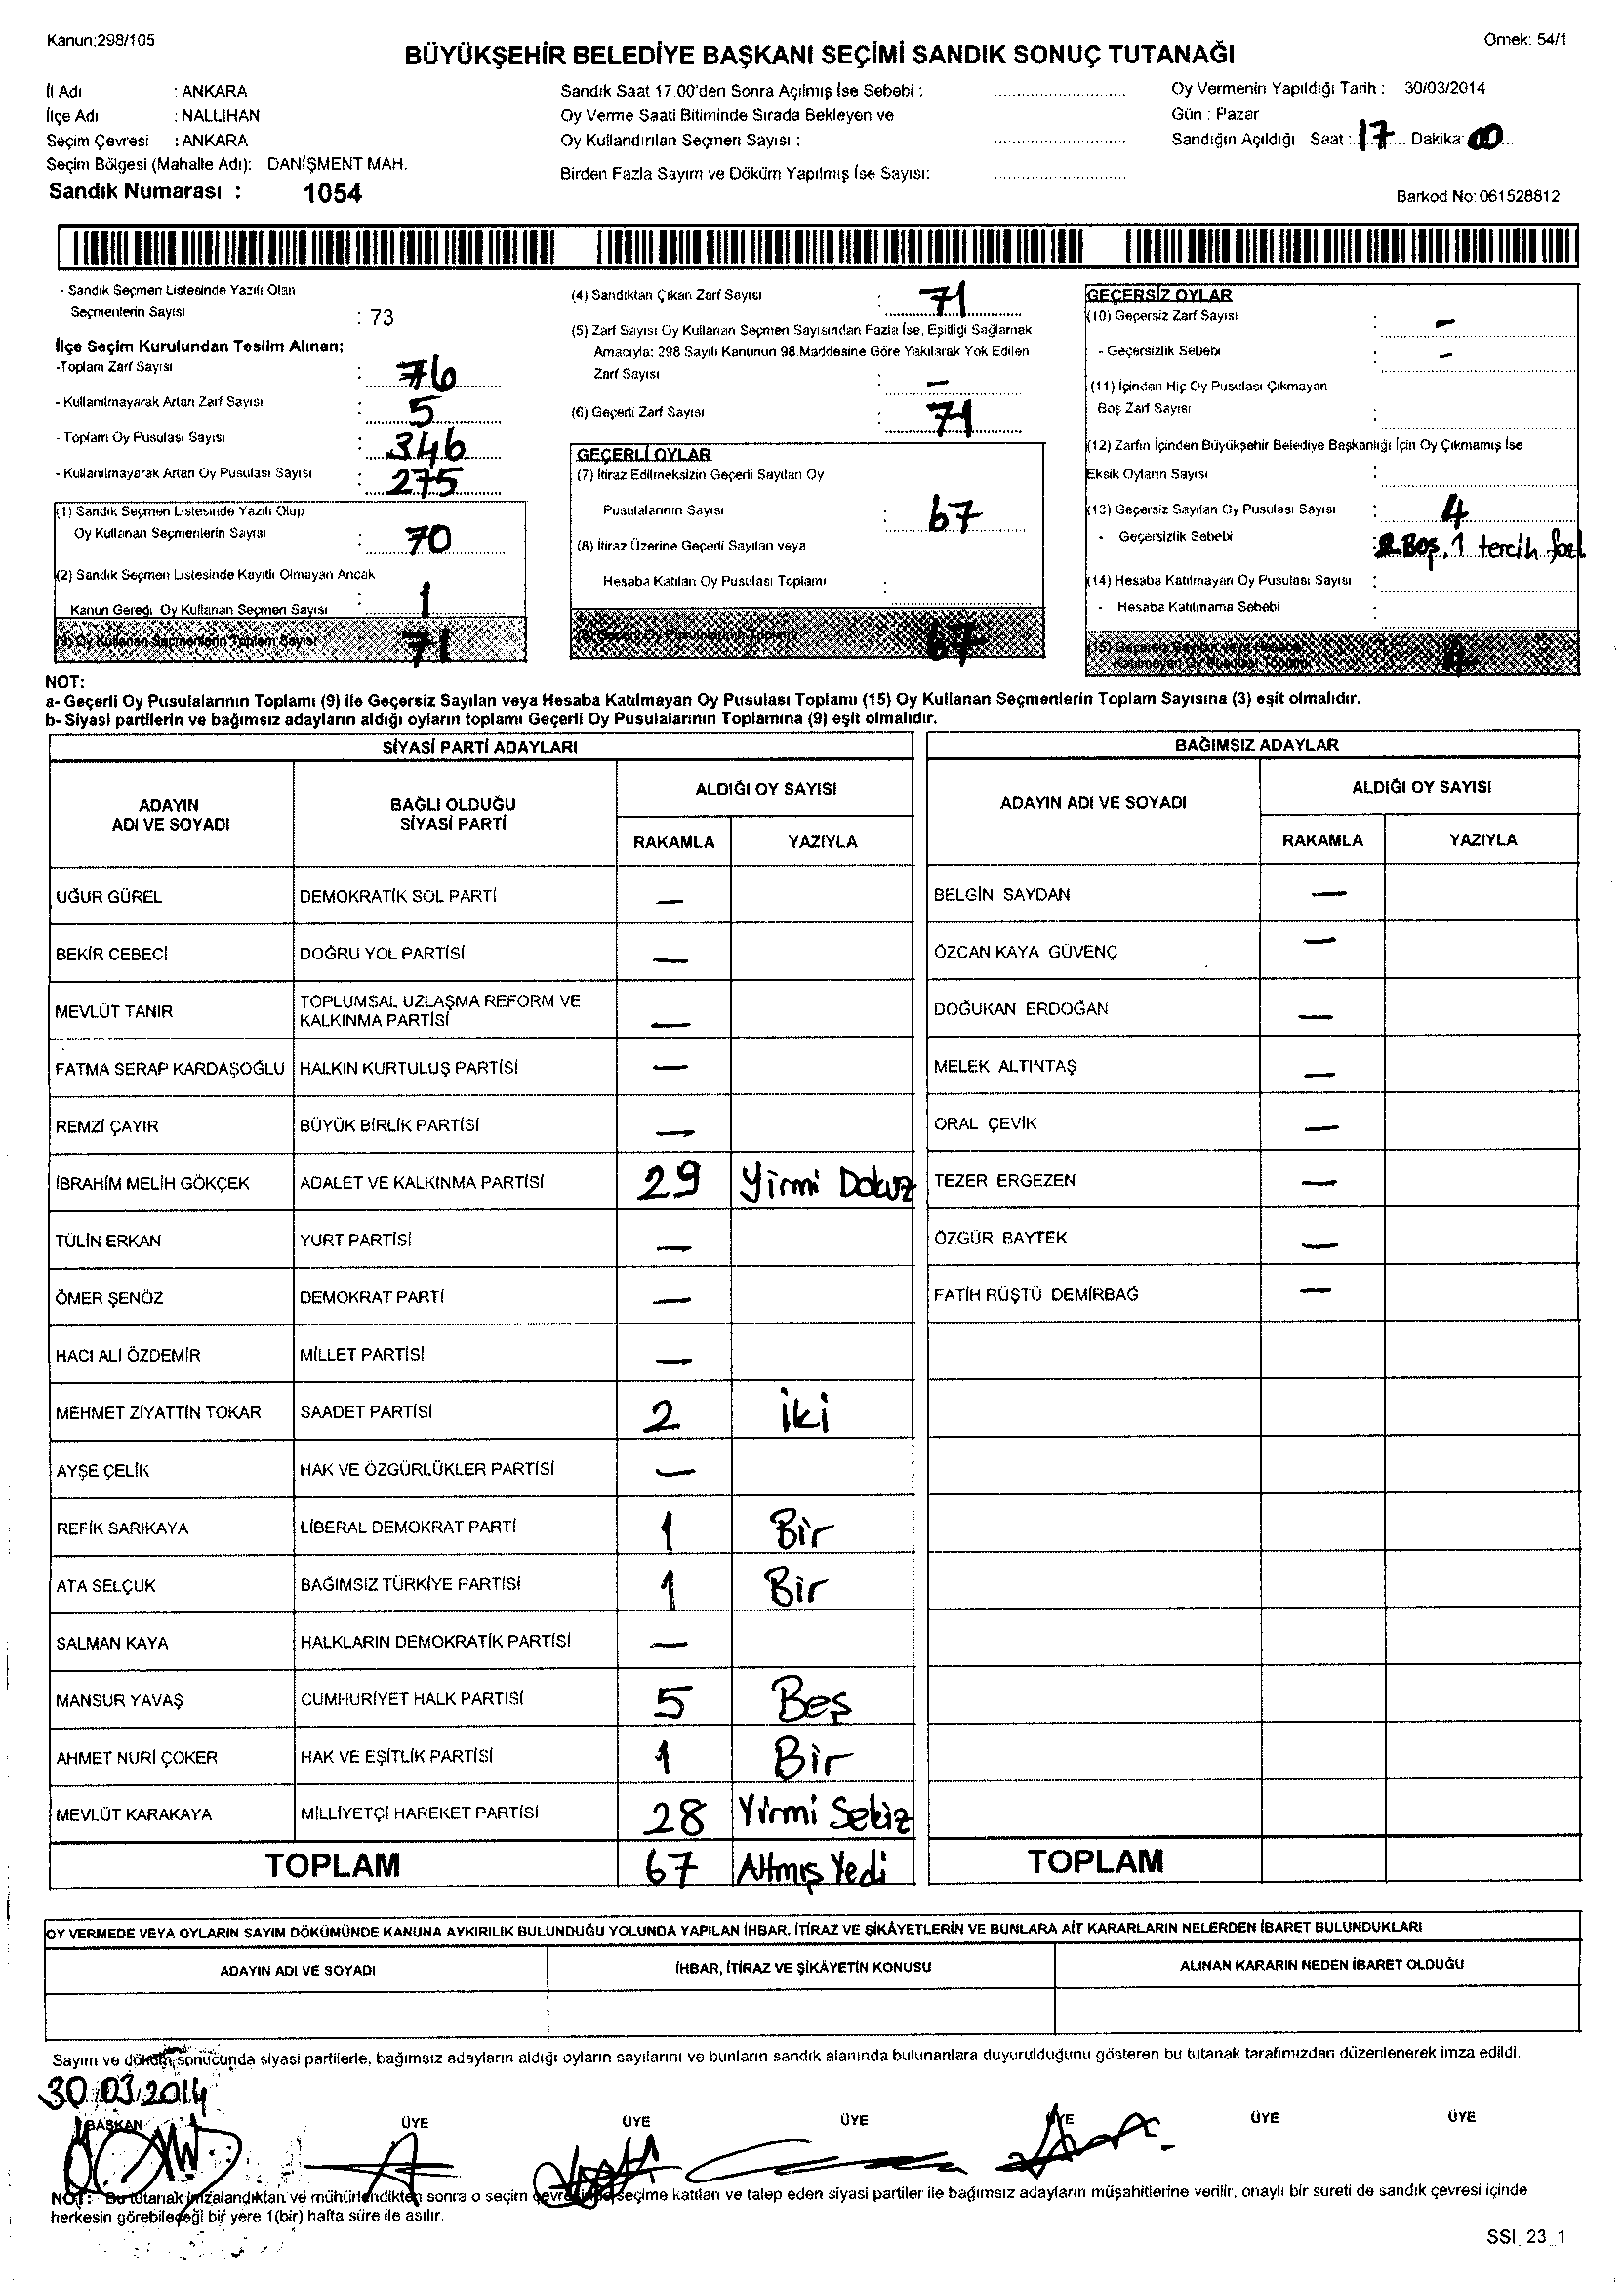 Kanun:298/105
Örnek: 54/1
BÜYÜKŞEHİR BELEDİYE BAŞKANI SEÇİMİ SANDIK SONUÇ TUTANAĞI
İl Adı : ANKARA
İlçe Adı : NALLIHAN
Seçim Çevresi : ANKARA
Seçim Bölgesi (Mahalle Adı): DANİŞMENT MAH.
Sandık Numarası : 1054
Sandık Saat 17.00'den Sonra Açılmış İse Sebebi :
Oy Verme Saati Bitiminde Sırada Bekleyen ve
Oy Kullandırılan Seçmen Sayısı :
Birden Fazla Sayım ve Döküm Yapılmış İse Sayısı:
Oy Vermenin Yapıldığı Tarih : 30/03/2014
Gün : Pazar
Sandığın Açıldığı Saat : 17 Dakika: 00
Barkod No: 061528812
- Sandık Seçmen Listesinde Yazılı Olan
Seçmenlerin Sayısı : 73
İlçe Seçim Kurulundan Teslim Alınan;
-Toplam Zarf Sayısı : 76
- Kullanılmayarak Artan Zarf Sayısı : 5
- Toplam Oy Pusulası Sayısı : 346
- Kullanılmayarak Artan Oy Pusulası Sayısı : 275
(1) Sandık Seçmen Listesinde Yazılı Olup
Oy Kullanan Seçmenlerin Sayısı : 70
(2) Sandık Seçmen Listesinde Kayıtlı Olmayan Ancak
Kanun Gereği Oy Kullanan Seçmen Sayısı : 1
(3) Oy Kullanan Seçmenlerin Toplam Sayısı 71
(4) Sandıktan Çıkan Zarf Sayısı : 71
(5) Zarf Sayısı Oy Kullanan Seçmen Sayısından Fazla İse, Eşitliği Sağlamak
Amacıyla: 298 Sayılı Kanunun 98.Maddesine Göre Yakılarak Yok Edilen
Zarf Sayısı : -
(6) Geçerli Zarf Sayısı : 71
GEÇERLİ OYLAR
(7) İtiraz Edilmeksizin Geçerli Sayılan Oy
Pusulalarının Sayısı : 67
(8) İtiraz Üzerine Geçerli Sayılan veya
Hesaba Katılan Oy Pusulası Toplamı :
(9) Geçerli Oy Pusulalarının Toplamı 67
GEÇERSİZ OYLAR
(10) Geçersiz Zarf Sayısı : -
- Geçersizlik Sebebi : -
(11) İçinden Hiç Oy Pusulası Çıkmayan
Boş Zarf Sayısı :
(12) Zarfın İçinden Büyükşehir Belediye Başkanlığı İçin Oy Çıkmamış İse
Eksik Oyların Sayısı :
(13) Geçersiz Sayılan Oy Pusulası Sayısı : 4
- Geçersizlik Sebebi : Boş, 1 tercih
(14) Hesaba Katılmayan Oy Pusulası Sayısı :
- Hesaba Katılmama Sebebi :
(15) Geçersiz Sayılan veya Hesaba
Katılmayan Oy Pusulası Toplamı 4
NOT:
a- Geçerli Oy Pusulalarının Toplamı (9) ile Geçersiz Sayılan veya Hesaba Katılmayan Oy Pusulası Toplamı (15) Oy Kullanan Seçmenlerin Toplam Sayısına (3) eşit olmalıdır.
b- Siyasi partilerin ve bağımsız adayların aldığı oyların toplamı Geçerli Oy Pusulalarının Toplamına (9) eşit olmalıdır.
SİYASİ PARTİ ADAYLARI
ADAYIN ADI VE SOYADI BAĞLI OLDUĞU SİYASİ PARTİ ALDIĞI OY SAYISI
RAKAMLA YAZIYLA
UĞUR GÜREL DEMOKRATİK SOL PARTİ —
BEKİR CEBECİ DOĞRU YOL PARTİSİ —
MEVLÜT TANIR TOPLUMSAL UZLAŞMA REFORM VE KALKINMA PARTİSİ —
FATMA SERAP KARDAŞOĞLU HALKIN KURTULUŞ PARTİSİ —
REMZİ ÇAYIR BÜYÜK BİRLİK PARTİSİ —
İBRAHİM MELİH GÖKÇEK ADALET VE KALKINMA PARTİSİ 29 Yirmi Dokuz
TÜLİN ERKAN YURT PARTİSİ —
ÖMER ŞENÖZ DEMOKRAT PARTİ —
HACI ALİ ÖZDEMİR MİLLET PARTİSİ —
MEHMET ZİYATTİN TOKAR SAADET PARTİSİ 2 İki
AYŞE ÇELİK HAK VE ÖZGÜRLÜKLER PARTİSİ —
REFİK SARIKAYA LİBERAL DEMOKRAT PARTİ 1 Bir
ATA SELÇUK BAĞIMSIZ TÜRKİYE PARTİSİ 1 Bir
SALMAN KAYA HALKLARIN DEMOKRATİK PARTİSİ —
MANSUR YAVAŞ CUMHURİYET HALK PARTİSİ 5 Beş
AHMET NURİ ÇOKER HAK VE EŞİTLİK PARTİSİ 1 Bir
MEVLÜT KARAKAYA MİLLİYETÇİ HAREKET PARTİSİ 28 Yirmi Sekiz
TOPLAM 67 Altmış Yedi
BAĞIMSIZ ADAYLAR
ADAYIN ADI VE SOYADI ALDIĞI OY SAYISI
RAKAMLA YAZIYLA
BELGİN SAYDAN —
ÖZCAN KAYA GÜVENÇ —
DOĞUKAN ERDOĞAN —
MELEK ALTINTAŞ —
ORAL ÇEVİK —
TEZER ERGEZEN —
ÖZGÜR BAYTEK —
FATİH RÜŞTÜ DEMİRBAĞ —
TOPLAM
OY VERMEDE VEYA OYLARIN SAYIM DÖKÜMÜNDE KANUNA AYKIRILIK BULUNDUĞU YOLUNDA YAPILAN İHBAR, İTİRAZ VE ŞİKÂYETLERİN VE BUNLARA AİT KARARLARIN NELERDEN İBARET BULUNDUKLARI
ADAYIN ADI VE SOYADI İHBAR, İTİRAZ VE ŞİKÂYETİN KONUSU ALINAN KARARIN NEDEN İBARET OLDUĞU
Sayım ve döküm sonucunda siyasi partilerle, bağımsız adayların aldığı oyların sayılarını ve bunların sandık alanında bulunanlara duyurulduğunu gösteren bu tutanak tarafımızdan düzenlenerek imza edildi.
30.03.2014
BAŞKAN ÜYE ÜYE ÜYE ÜYE ÜYE ÜYE
NOT: Bu tutanak imzalandıktan ve mühürlendikten sonra o seçim çevresinde seçime katılan ve talep eden siyasi partiler ile bağımsız adayların müşahitlerine verilir, onaylı bir sureti de sandık çevresi içinde
herkesin görebileceği bir yere 1(bir) hafta süre ile asılır.
SSI_23_1